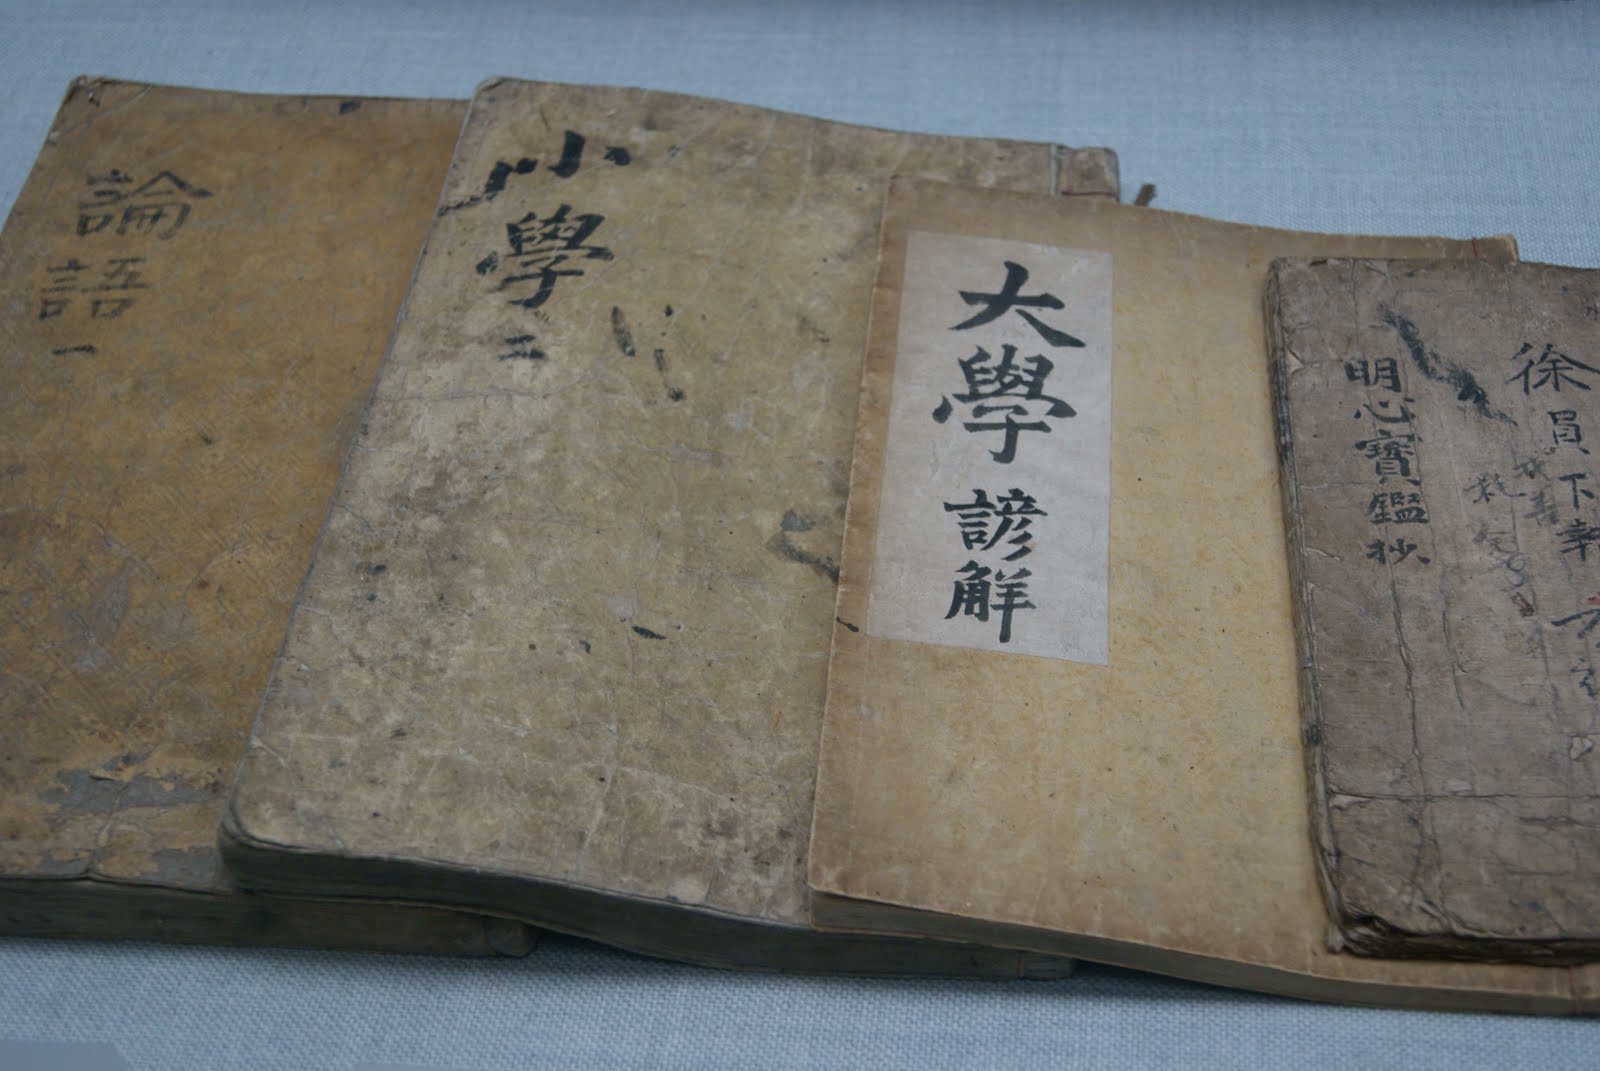 論語一
小學二
大學諺解
明心寶鑑抄
徐
員下